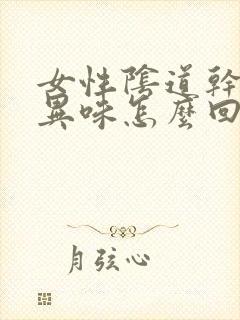 女性陰道幹
異味怎麼回
月弦心